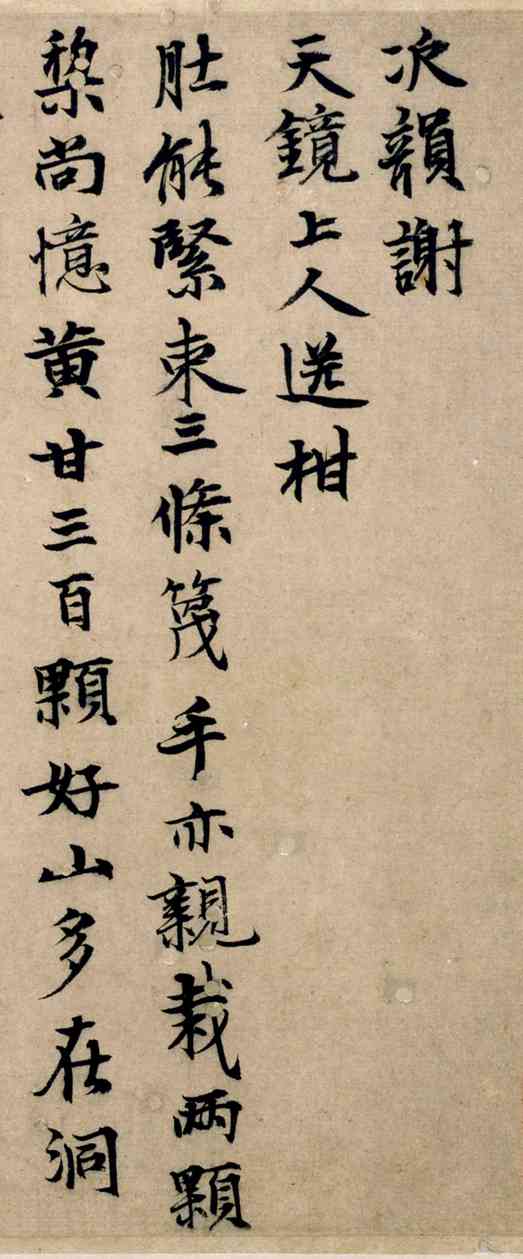 次韻謝
天鏡上人送柑
肚能緊束三條篾手亦親栽兩顆
棃尚憶黃甘三百顆好山多在洞